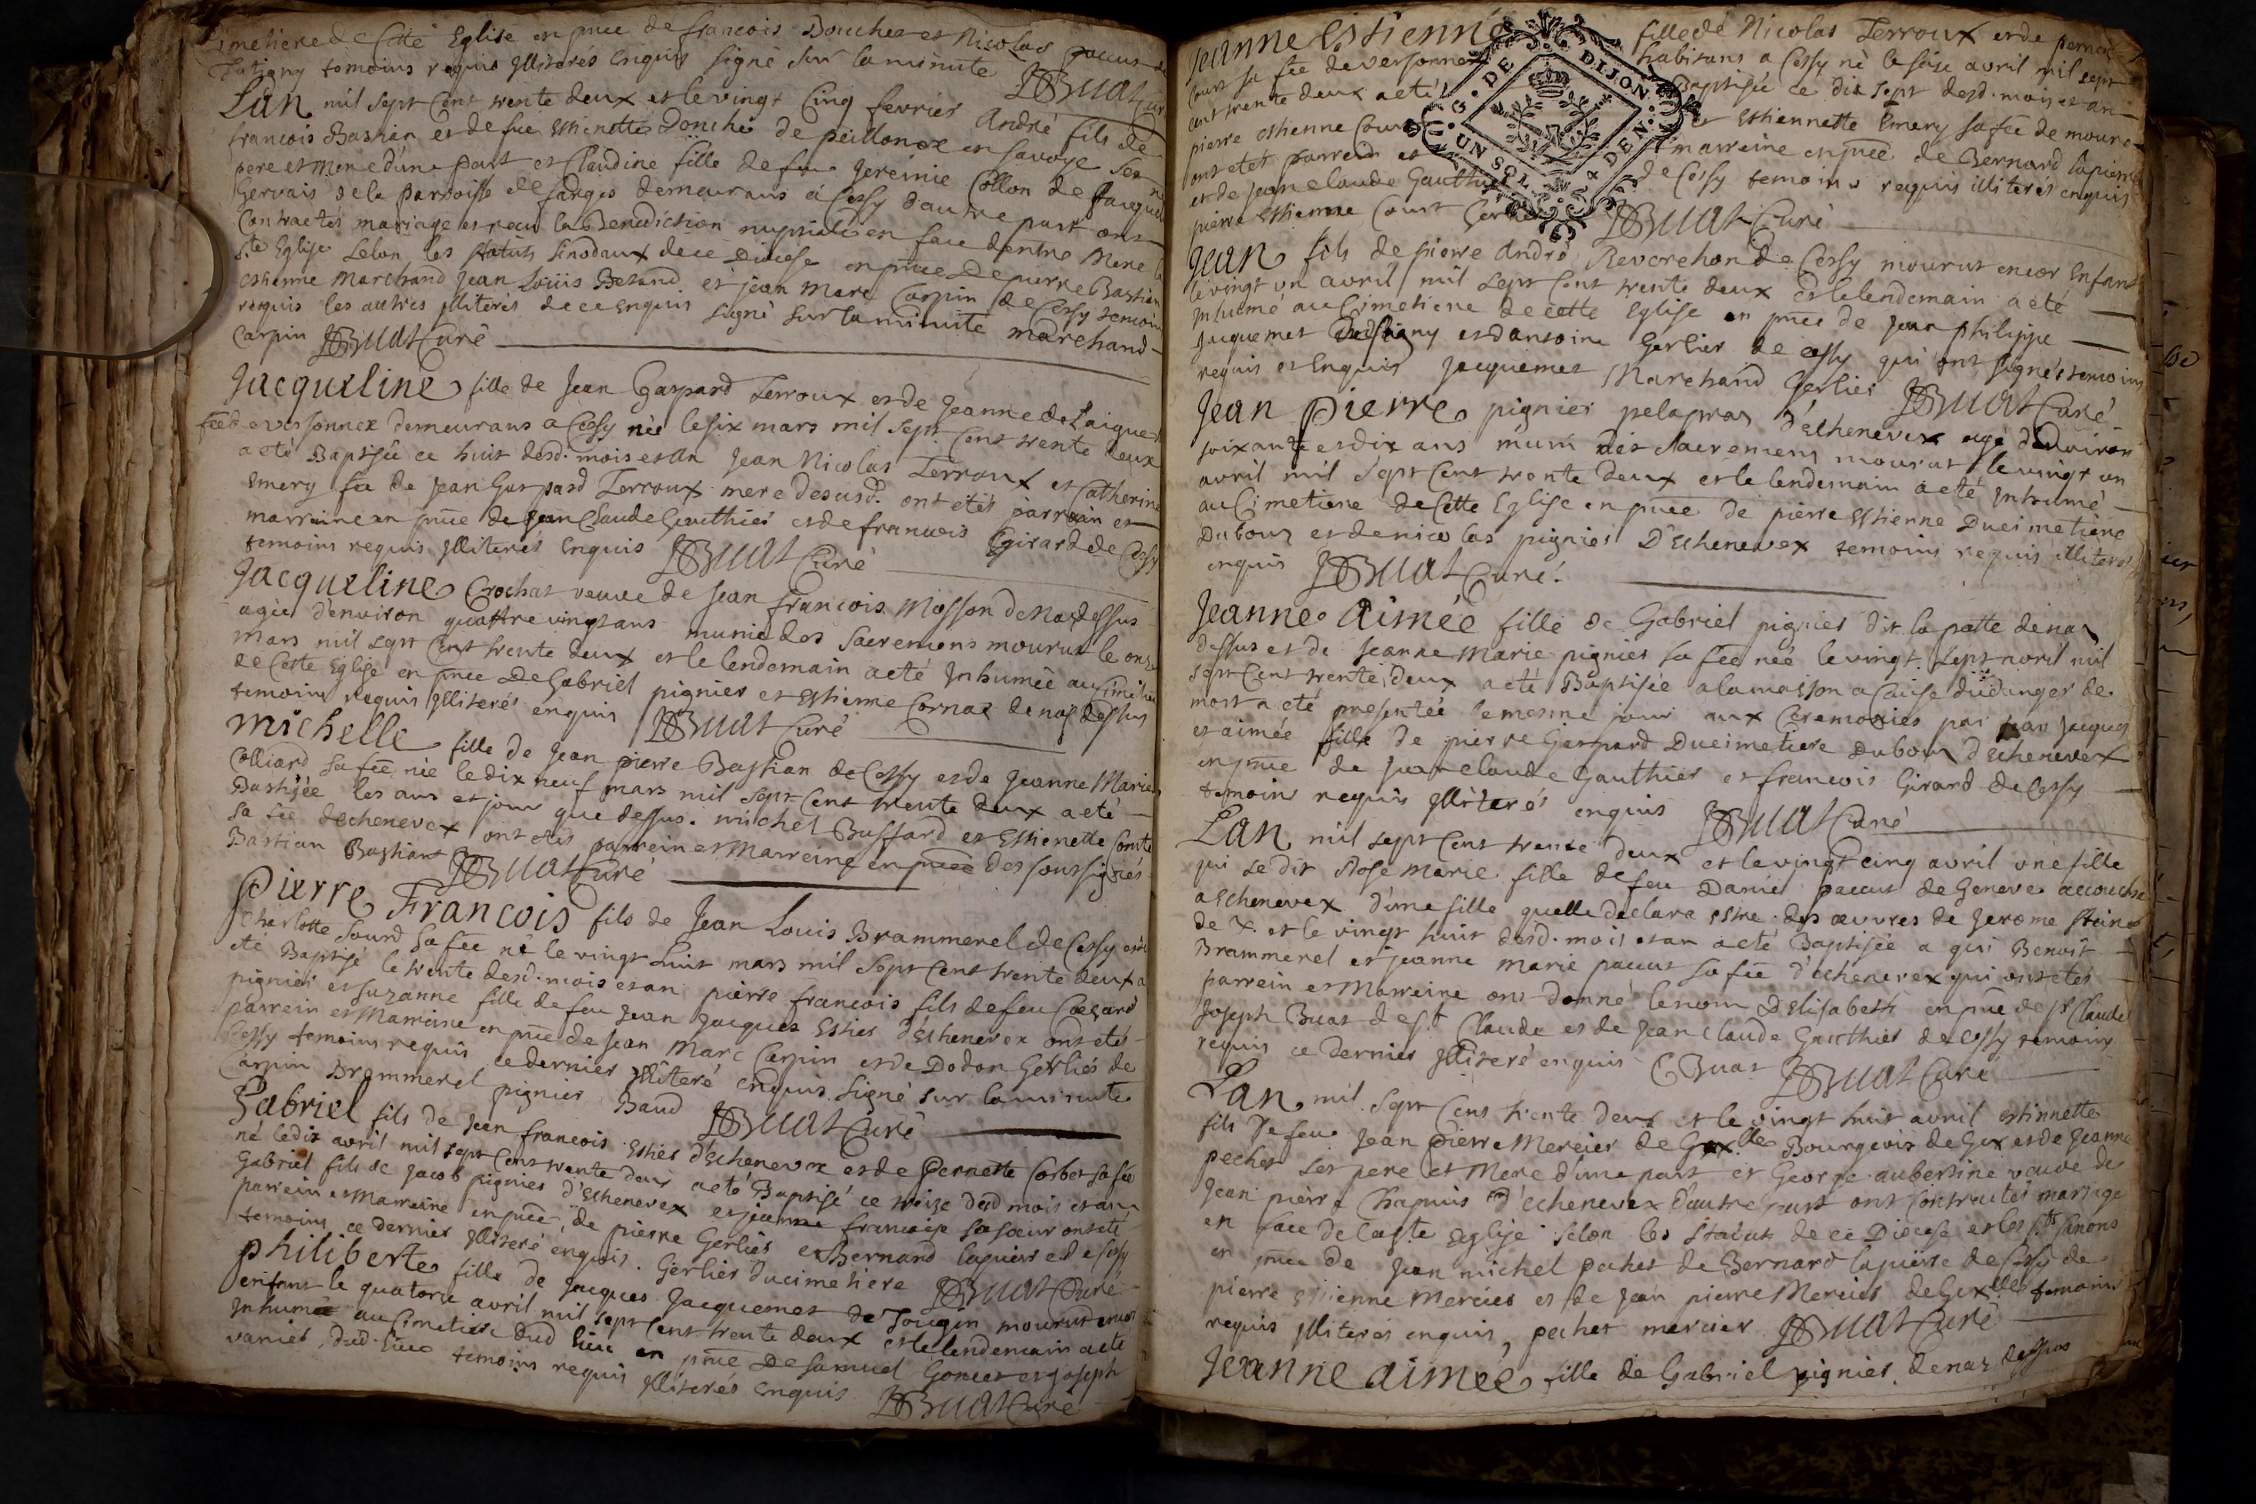 Cimetiere de Cette Eglise en pnce de francois Douches et Nicolas paccut de
Satigny temoins requis Illiterés Enquis signé sur la minute JBuat Curé
Lan mil sept Cent trente deux et le vingt Cinq fevrier André fils de
francois Bastian et de fue Estienette Donche de peillonex en Savoye ses
pere et Mere d'une part et Claudine fille de feu Jeremie Collon de
Gervais de la parroisse de farges demeurans á Cessy d'autre part ont
Contractés mariage et receu la Benediction nuptiale en face de notre Mere
Ste Eglise selon les statuts sinodaux de ce Diocese en pnce de pierre Bastian
Estienne Marchand Jean Louis Betand et jean Marc Carpin de Cessy temoins
requis les autres Illiterés de ce Enquis signé sur la minute marchand
Carpin JBuat Curé
Jacqueline fille de Jean Gaspard Terroux et de Jeanne de Laigue
fee de versonnex demeurans a Cessy née le six mars mil sept Cent trente deux
a eté Baptisée ce huit desd. mois et an Jean Nicolas Terroux et Catherine
Emery fee de Jean Gaspard Terroux mere desusd. ont etés parrain et
marraine en pnce de Jean Claude Gauthier et de francois Girard de Cessy
temoins requis Illiterés Enquis JBuat Curé
Jacqueline Crochat veuve de Jean francois Mosson de Naz dessus
agée d'environ quattre vingt ans munie des sacremens mourut le onze
mars mil sept Cent trente deux et le lendemain a eté Inhumée au Cimetiere
de Cette Eglise en pnce De Gabriel pignier et Estienne Cornaz de naz dessus
temoins requis Illiterés enquis JBuat Curé
Michelle fille de Jean pierre Bastian de Cessy et de Jeanne Marie
Colliard sa fee née le dix neuf mars mil sept Cent trente deux a eté
Baptisée les ans et jour que dessus. michel Bussard et Estienette Comte
sa fée dechenevex ont etés parrein et Marreine en pnce des soussignés
Bastian Bastian JBuat Curé
Pierre Francois fils de Jean Louis Brammerel de Cessy et de
Charlotte Sourd sa fée né le vingt huit mars mil sept Cent trente deux a
eté Baptisé le trente desd. mois et an pierre francois fils de feu Cezard
pignier et suzanne fille de feu Jean Jacques Esties d'Echenevex ont etés
parrein et Marreine en pnce de Jean Marc Carpin et de Dodon Gerliés de
Cessy temoins requis ce dernier Illiteré enquis signé sur la minute
Carpin Brammerel pignier Baud JBuat Curé
Gabriel fils de Jean francois Esties d'Echenevex et de Pernette Corbet sa fée
né le dix avril mil sept Cent trente deux a eté Baptisé ce treize dud mois et an
Gabriel fils de Jacob pignies d'Echenevex et jeanne francoise sa soeur ont etés
parrein et Marreine en pnce de pierre Gerlier et Bernard lapierre de Cessy
temoins ce dernier Illiteré enquis. Gerlier Ducimetiere JBuat Curé
Philiberte fille de Jacques Jacquemet de Tougin mourut encor
enfant le quatorze avril mil sept Cent trente deux et le lendemain a eté
Inhumée au Cimetiere dud lieu en pnce De Samuel Goncet et Joseph
vaniet, dud. lieu temoins requis Illiterés Enquis JBuat Curé
Jeanne Estienne fille de Nicolas Terroux et de pernette
Court sa fée de versonnex habitans a Cessy né le seize avril mil sept
cent trente deux a eté Baptisée ce dix sept desd. mois et an
pierre estienne Court et Estiennette Emery sa fée de moure
ont etés parrein et marreine en pnce de Bernard lapierre
et de Jean claude Gauthier de Cessy temoins requis illiterés enquis
pierre Estienne Court JBuat Curé
G. DE DIJON
UN SOL 4 DEN.
Jean fils de pierre André Reverchon de Cessy mourut encor Enfant
le vingt un avril mil sept Cent trente deux et le lendemain a eté
Inhumé au Cimetiere de cette Eglise en pnce de Jean philippe
Jacquemet de segny et d'antoine Gerlier de cessy qui ont signés temoins
requis et Enquis Jacquemet Marchand Gerlier JBuat Curé
Jean Pierre pignier pelagraz d'Echenevex agé d'environ
soixante et dix ans muni des sacremens mourut le vingt un
avril mil sept Cent trente deux et le lendemain a eté Inhumé
au Cimetiere de Cette Eglise en pnce de pierre Estienne Ducimetiere
Dubouz et de nicolas pignier D'Echenevex temoins requis illiterés
enquis JBuat Curé.
Jeanne Aimée fille de Gabriel pignier dit la patte de naz
dessus et de Jeanne Marie pignier sa fée née le vingt sept avril mil
sept Cent trente deux a eté Baptisée a la maison a Cause du danger de
mort a eté presentée le mesme jour aux Ceremonies par Jean Jacques
et aimée fille de pierre Gaspard Ducimetiere Dubouz d'Echenevex
en pnce de Jean claude Gauthier et francois Girard de Cessy
temoins requis Illiterés enquis JBuat Curé
Lan mil sept Cent trente deux et le vingt cinq avril une fille
qui se dit Rose Marie fille de feu Daniel paccut de Geneve accouchée
a Echenevex d'une fille quelle declara estre des oeuvres de Jerome
de X. et le vingt huit desd. mois et an a eté Baptisée a qui Benoit
Brammerel et jeanne Marie paccut sa fée d'echenevex qui ont etés
parrein et Marreine ont donné le nom D'Elisabeth en pnce de Sr Claude
Joseph Buat de St Claude et de Jean Claude Gauthier de Cessy temoins
requis ce dernier Illiteré enquis C Buat JBuat Curé
Lan mil sept Cent trente deux et le vingt huit avril estinnette
fils de feu Jean pierre Mercier de Gex lle Bourgeois de Gex et de Jeanne
pechet ses pere et Mere d'une part et George aubertine veuve de
Jean pierre Chapuis d'echenevex d'autre part ont Contractés mariage
en face de la Ste Eglise selon les statut de ce Diocese et les Sts Canons
en pnce de Jean michel pechet de Bernard lapierre de Cessy de
pierre Estienne Mercier et de Jean pierre Mercier de Gex lle temoins
requis Illiterés enquis, pechet mercier JBuat Curé
Jeanne aimée fille de Gabriel pignier de naz dessus